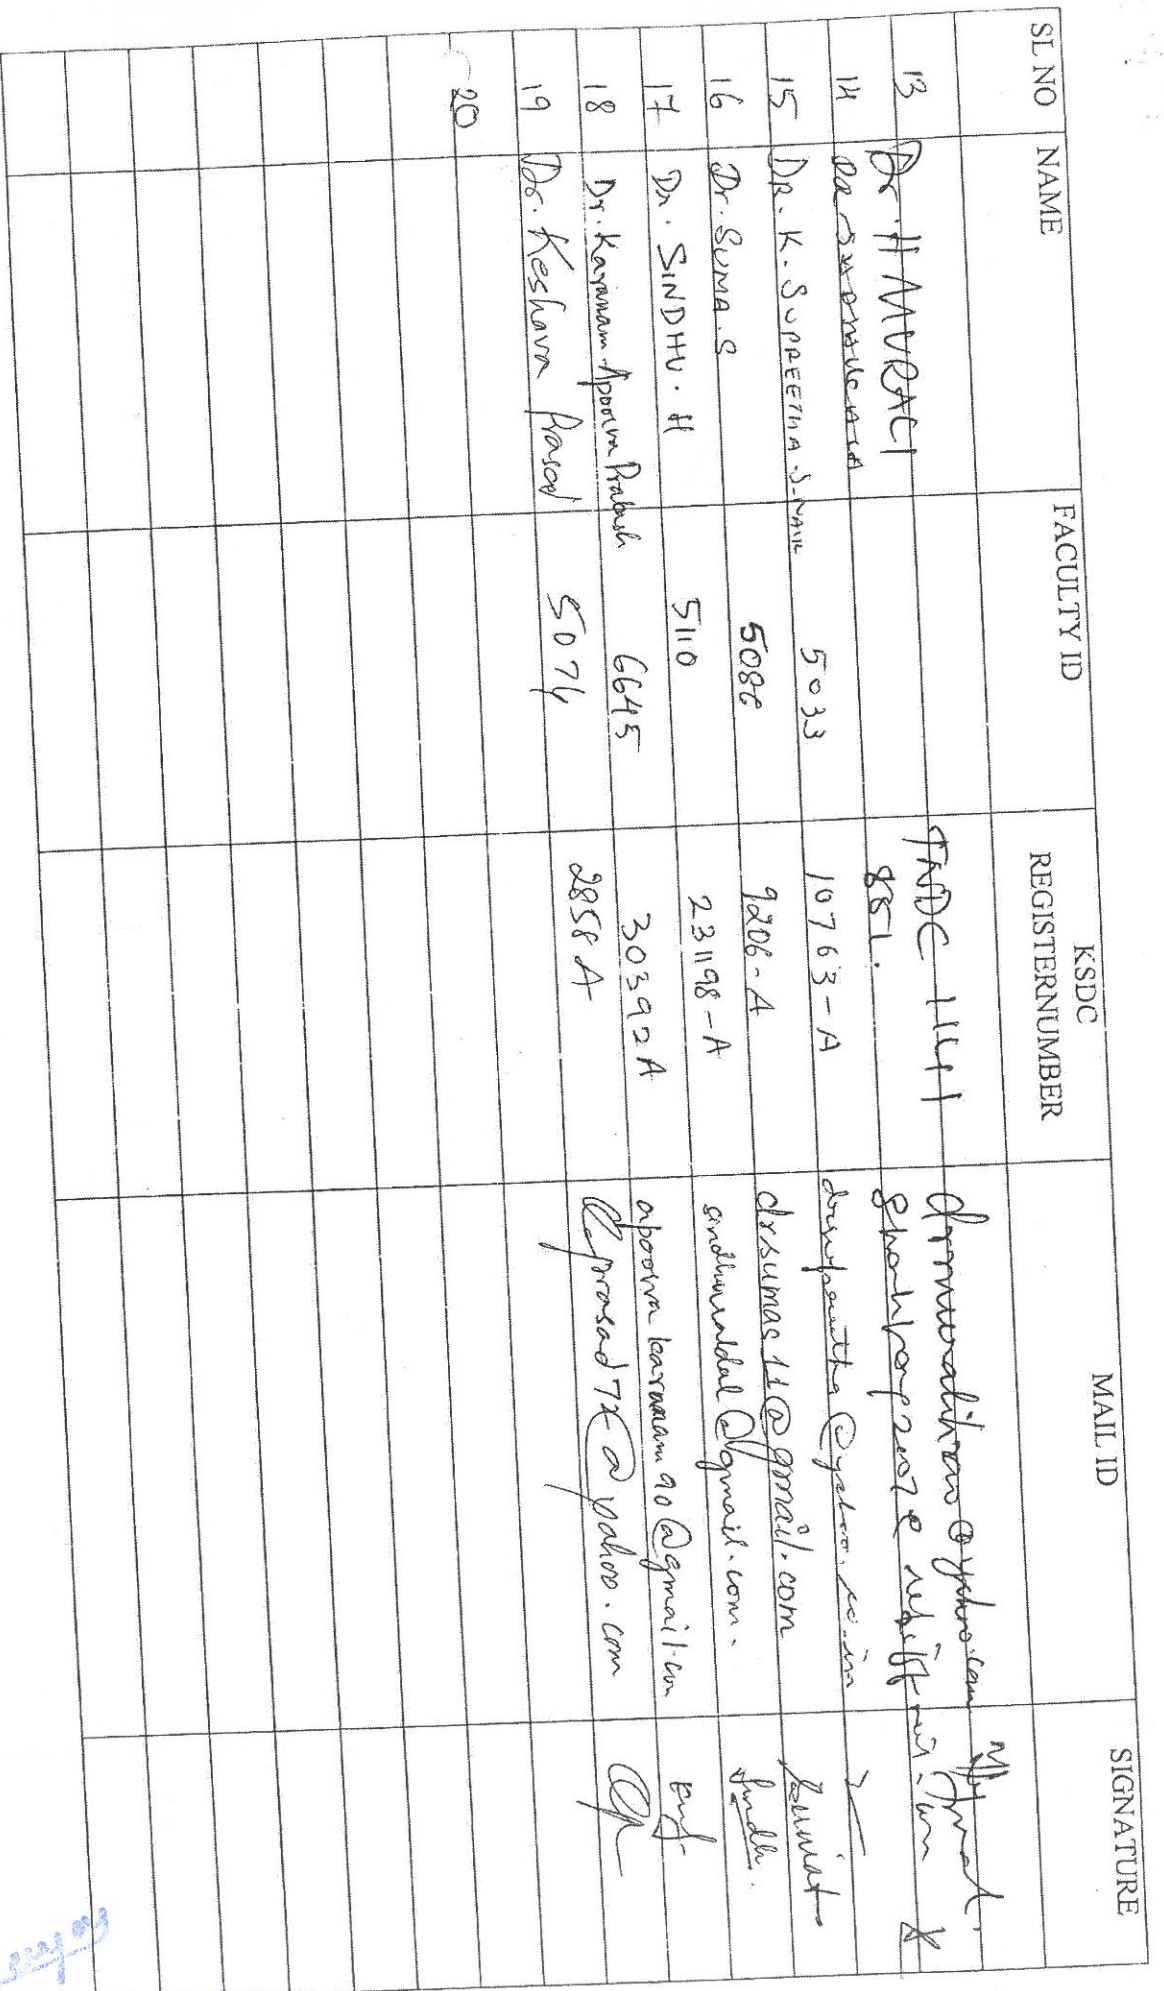 SL NO NAME FACULTY ID KSDC REGISTERNUMBER MAIL ID SIGNATURE
13 Dr. H MURALI TNDC 1441 drmuralihrao@yahoo.com
14 DR 881.
15 DR. K. SUPREETHA S. NAIK 5033 10763-A drsupreetha@yahoo.co.in
16 Dr. SUMA. S 5086 9206-A drsumas11@gmail.com
17 Dr. SINDHU. H 5110 23198-A @gmail.com.
18 Dr. Karanam Apoorva Prakash 6645 30392A apoorva karanam90@gmail.com
19 Dr. Keshava Prasad 5074 2858 A @yahoo.com
20